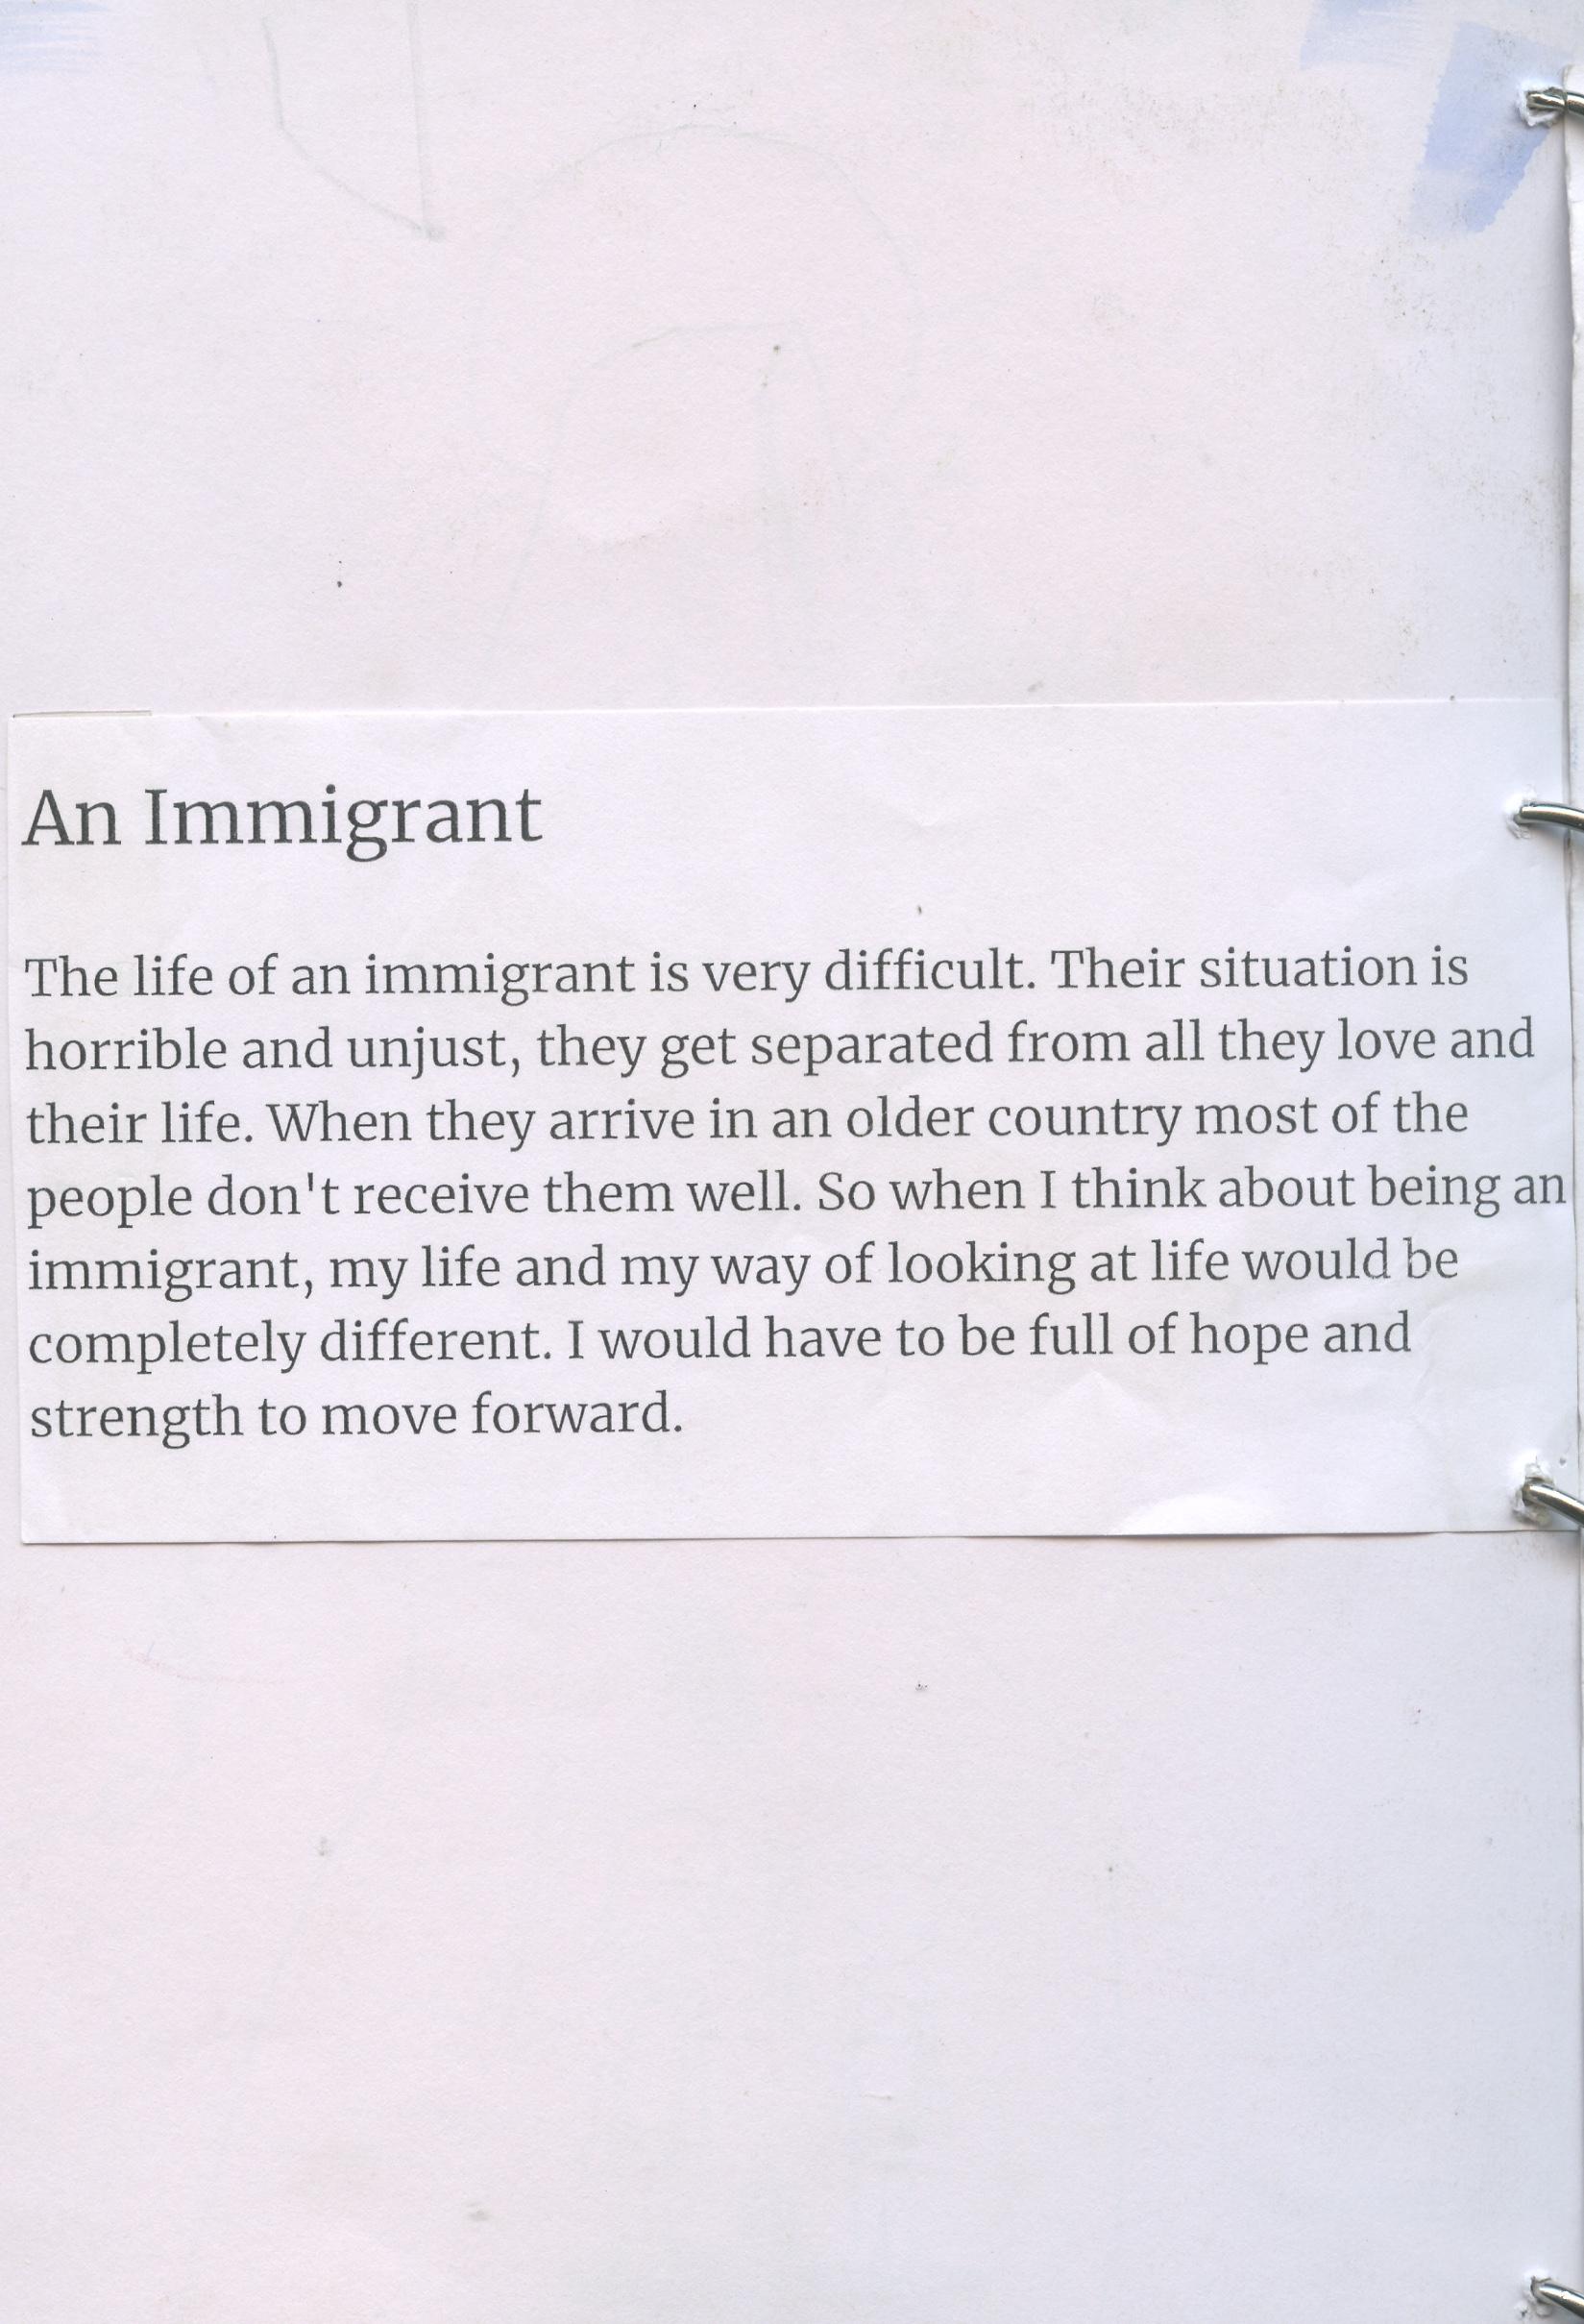 An Immigrant
The life of an immigrant is very difficult. Their situation is
horrible and unjust, they get separated from all they love and
their life. When they arrive in an older country most of the
people don't receive them well. So when I think about being an
immigrant, my life and my way of looking at life would be
completely different. I would have to be full of hope and
strength to move forward.